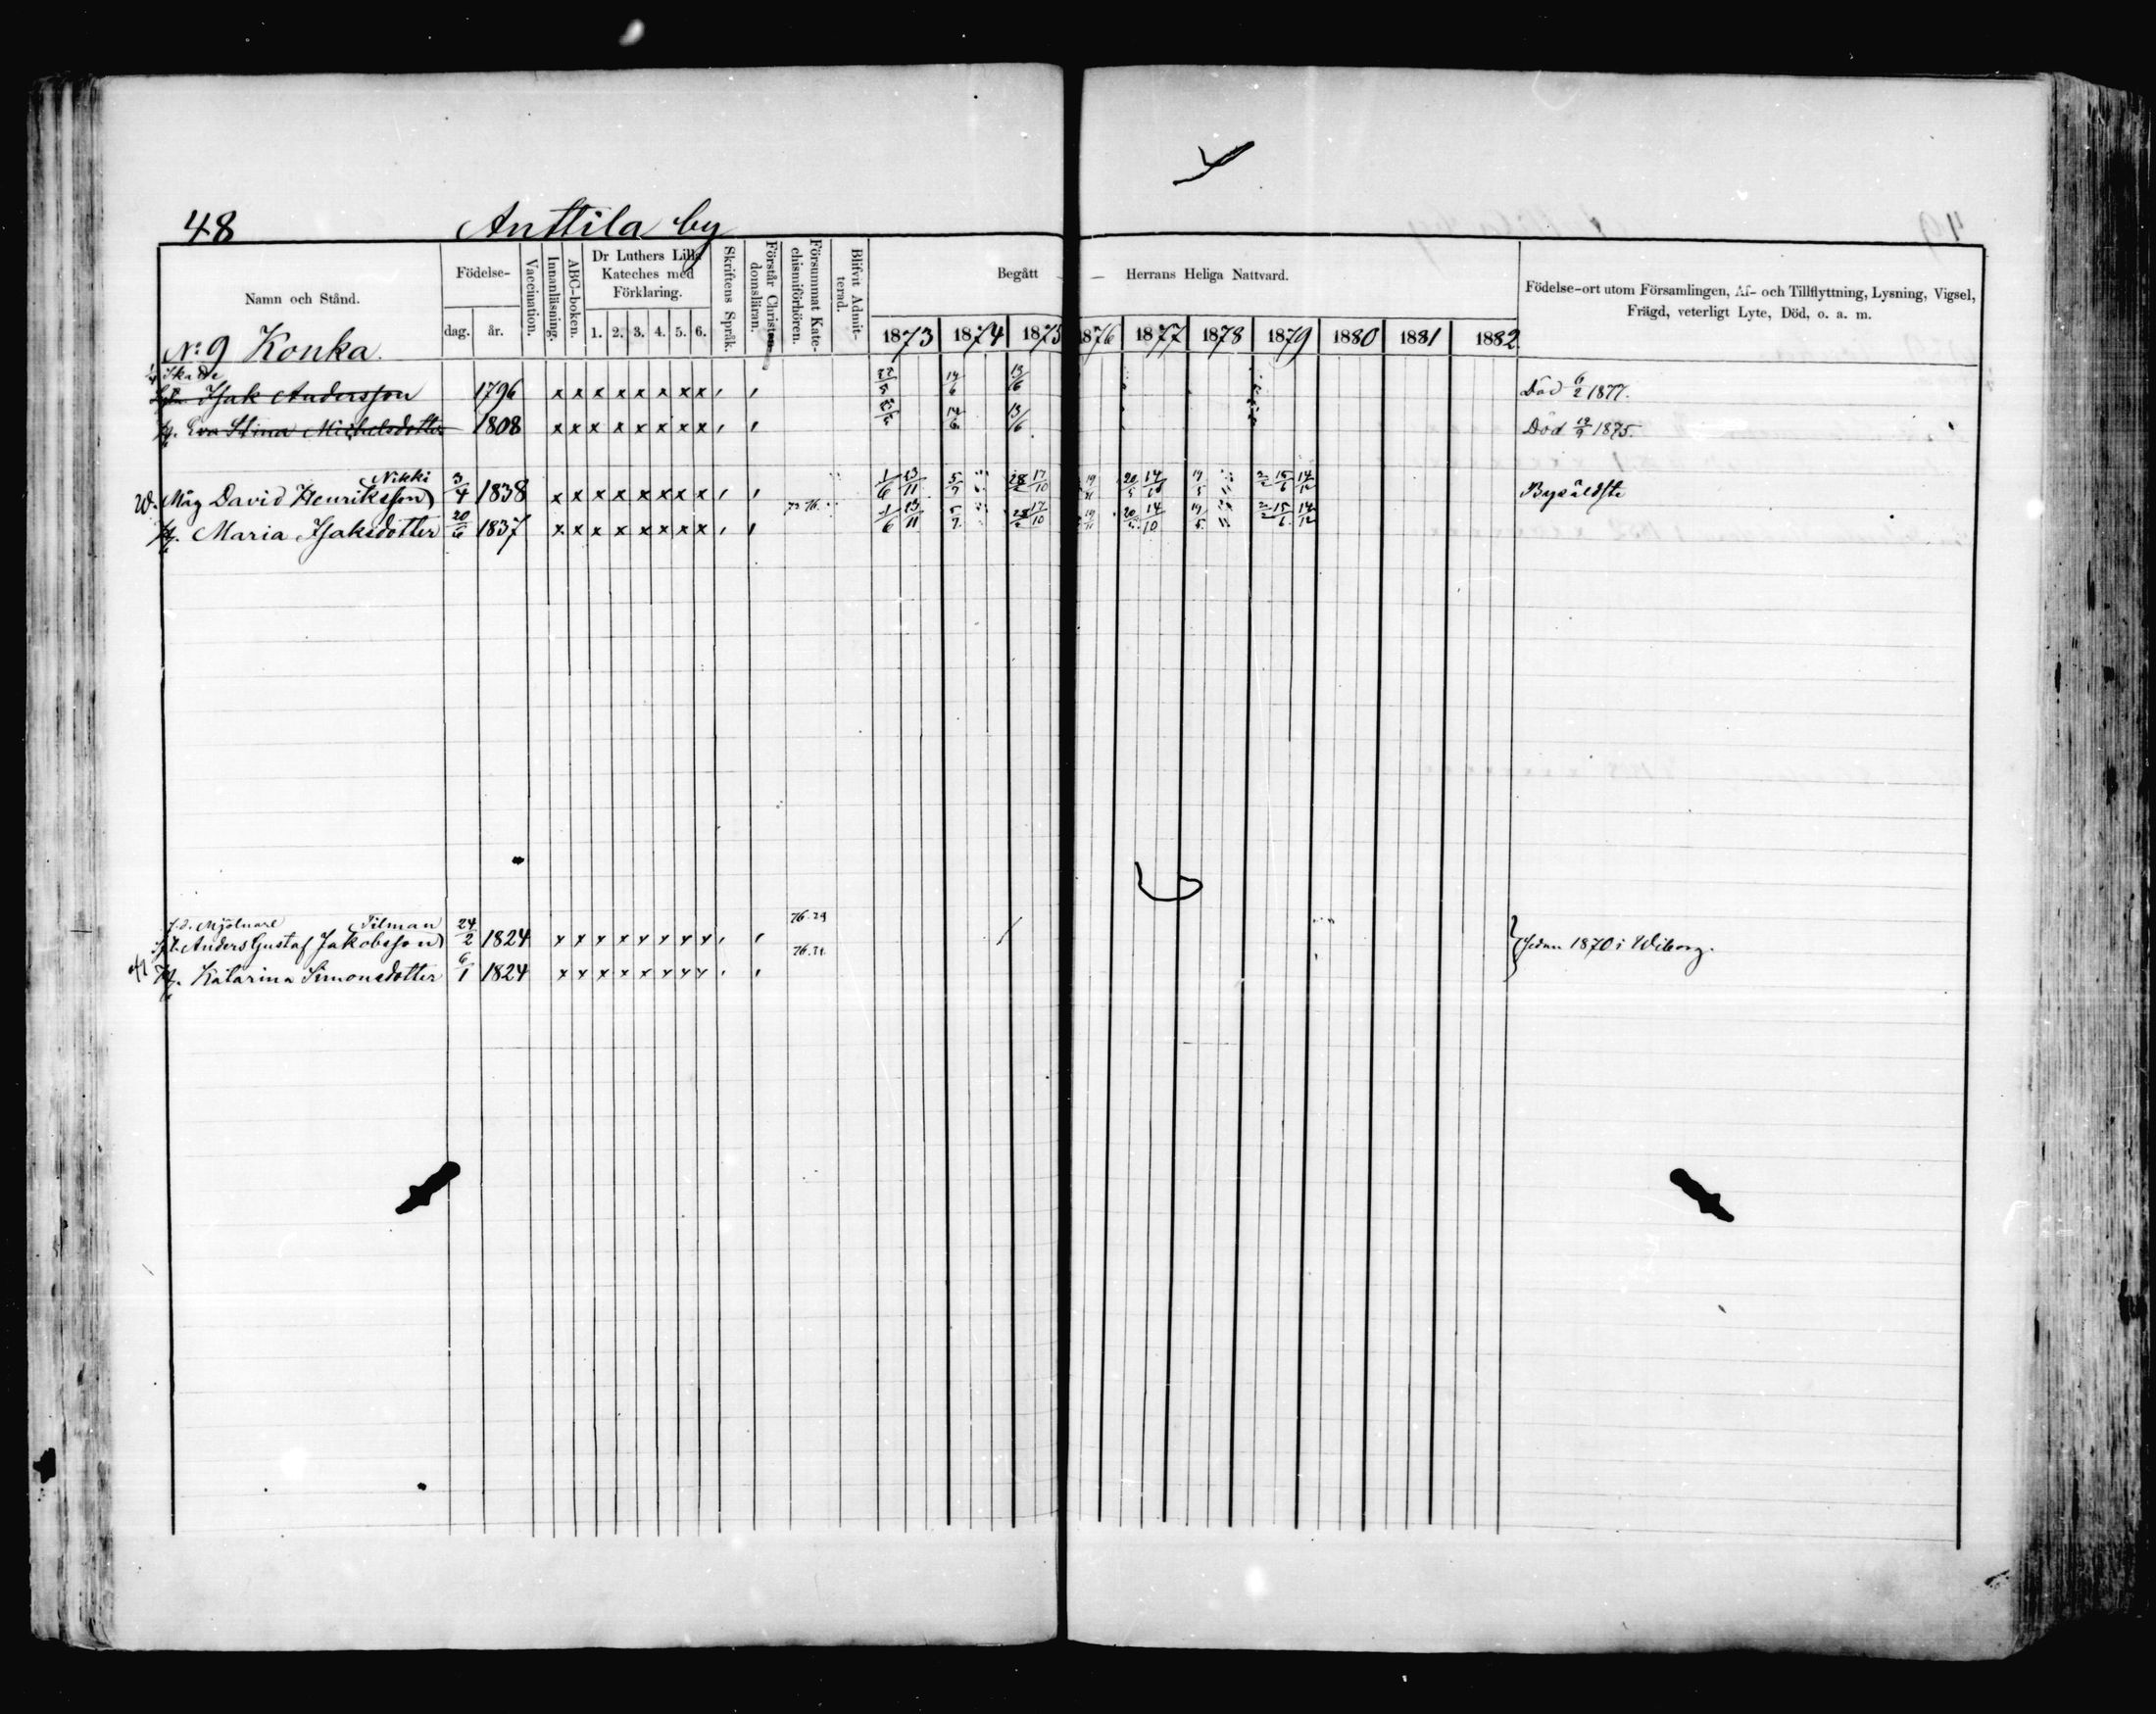 48 Anttila by
Namn och Stånd. Födelse- dag. år. Vaccination. Innanläsning. ABC-boken. Dr Luthers Lilla Kateches med Förklaring. 1. 2. 3. 4. 5. 6. Skriftens Språk. Förstår Christendomsläran. Försummat Katechismiförhören. Blifvit Admitterad. Begått Herrans Heliga Nattvard. 1873 1874 1875 1876 1877 1878 1879 1880 1881 1882 Födelse-ort utom Församlingen, Af- och Tillflyttning, Lysning, Vigsel, Frägd, veterligt Lyte, Död, o. a. m.
No 9 Konka.
Isak Andersson 1796 x x x x x x x x 14/6 13/6 Död 6/2 1877.
H. Eva Stina Michelsdotter 1808 x x x x x x x x 14/6 13/6 Död 1875.
Nikki
Måg David Henriksson 3/4 1838 x x x x x x x x 1/6 23/11 5/7 17/10 20/5 14/10 15/6 14/12 Byäldste
H. Maria Isaksdotter 20/6 1837 x x x x x x x x 1/6 23/11 5/7 17/10 20/5 14/10 15/6 14/12
f.d. Mjölnare Tilman
Anders Gustaf Jakobsson 24/2 1824 x x x x x x x x Sedan 1870 i Wiborg.
H. Katarina Simonsdotter 6/1 1824 x x x x x x x x